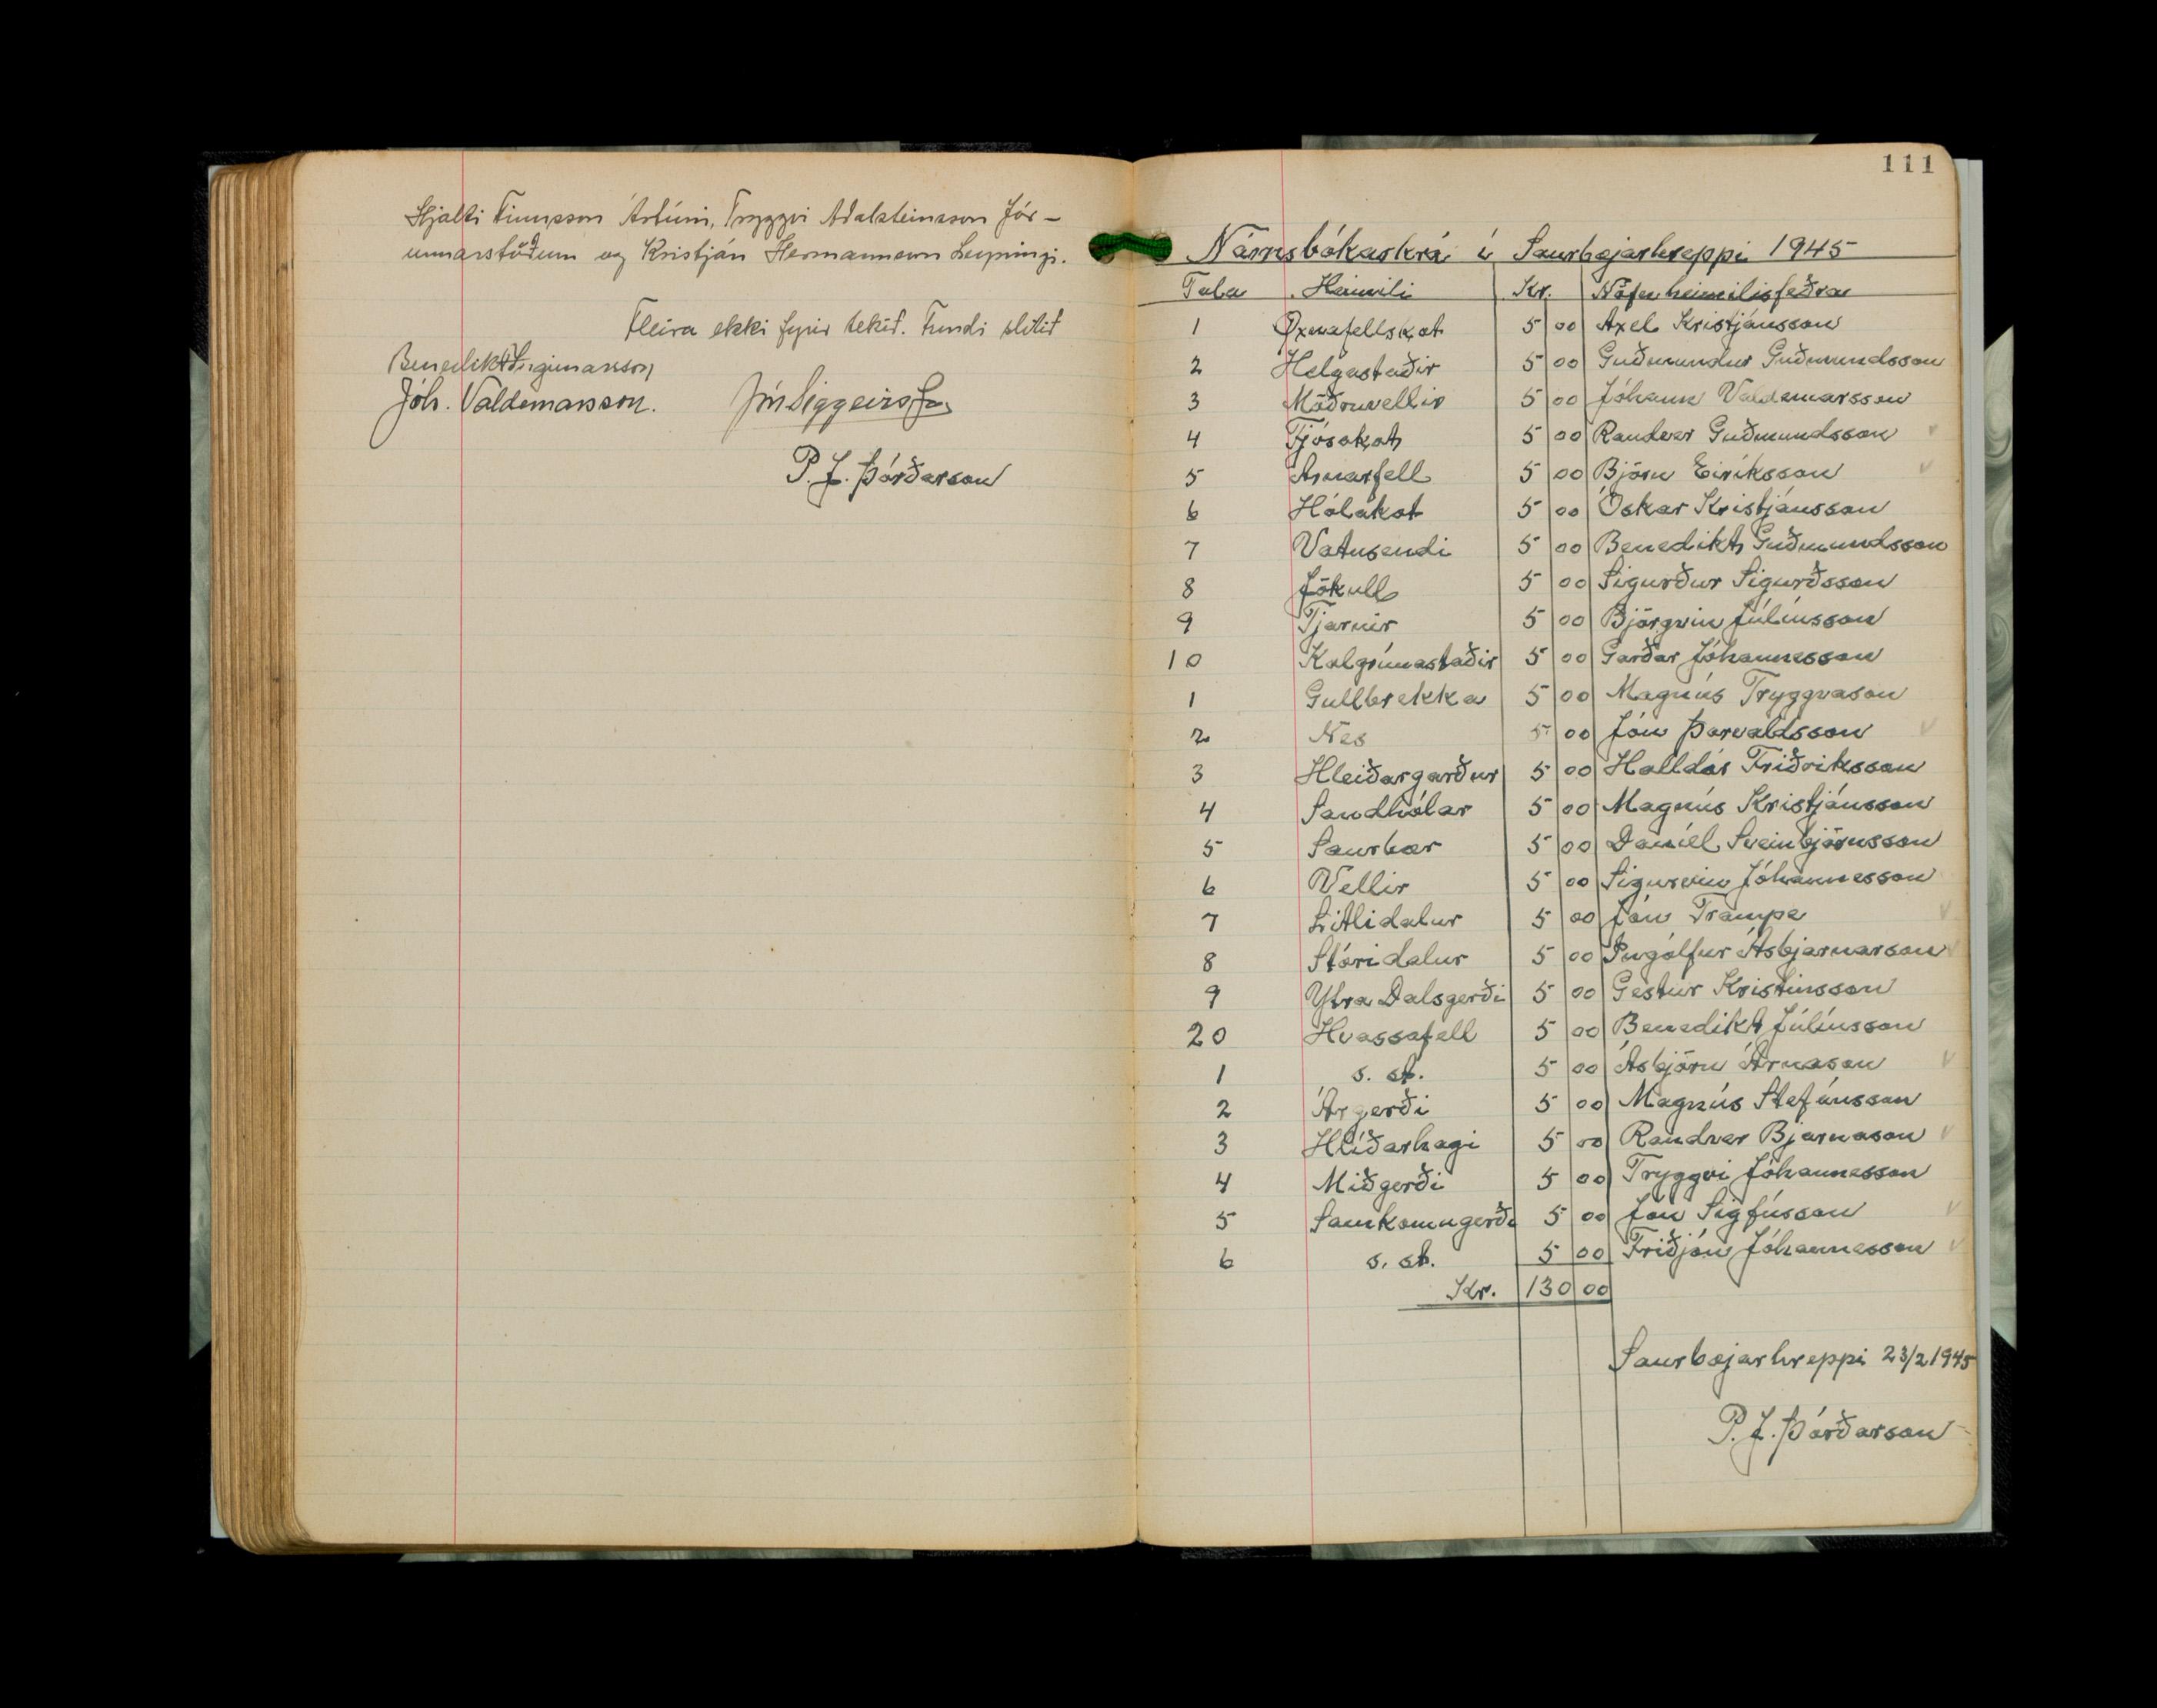 Hjalti Finnsson Ártúni, Tryggvi Aðalsteinsson Jór-
unnarstöðum og Kristján Hermannsson Leyningi.
Fleira ekki fyrir tekið. Fundi slitið
Benedikt Ingimarsson
Jóh. Valdemarsson. Jón Siggeirsson
P. J. Þórðarson
111
Námsbókaskrá í Saurbæjarhreppi 1945
Tala Heimili Kr. Nöfn heimilisfeðra
1 Öxnafellskot 5 00 Axel Kristjánsson
2 Helgastaðir 5 00 Guðmundur Guðmundsson
3 Möðruvellir 5 00 Jóhann Valdemarsson
4 Fjósakot 5 00 Randver Guðmundsson ✓
5 Arnarfell 5 00 Björn Eiríksson ✓
6 Hólakot 5 00 Óskar Kristjánsson
7 Vatnsendi 5 00 Benedikt Guðmundsson
8 Jökull 5 00 Sigurður Sigurðsson
9 Tjarnir 5 00 Björgvin Júlíusson
10 Kolgrímastaðir 5 00 Garðar Jóhannesson
1 Gullbrekka 5 00 Magnús Tryggvason
2 Nes 5 00 Jón Þorvaldsson ✓
3 Hleiðargarður 5 00 Halldór Friðriksson
4 Sandhólar 5 00 Magnús Kristjánsson
5 Saurbær 5 00 Daníel Sveinbjörnsson
6 Vellir 5 00 Sigurvin Jóhannesson
7 Litlidalur 5 00 Jón Trampe ✓
8 Stóridalur 5 00 Ingólfur Ásbjarnarson ✓
9 Ytra Dalsgerði 5 00 Gestur Kristinsson
20 Hvassafell 5 00 Benedikt Júlíusson
1 s. st. 5 00 Ásbjörn Árnason ✓
2 Árgerði 5 00 Magnús Stefánsson
3 Hlíðarhagi 5 00 Randver Bjarnason ✓
4 Miðgerði 5 00 Tryggvi Jóhannesson
5 Samkomugerði 5 00 Jón Sigfússon ✓
6 s. st. 5 00 Friðjón Jóhannesson ✓
Kr. 130 00
Saurbæjarhreppi 23/2 1945
P. J. Þórðarson